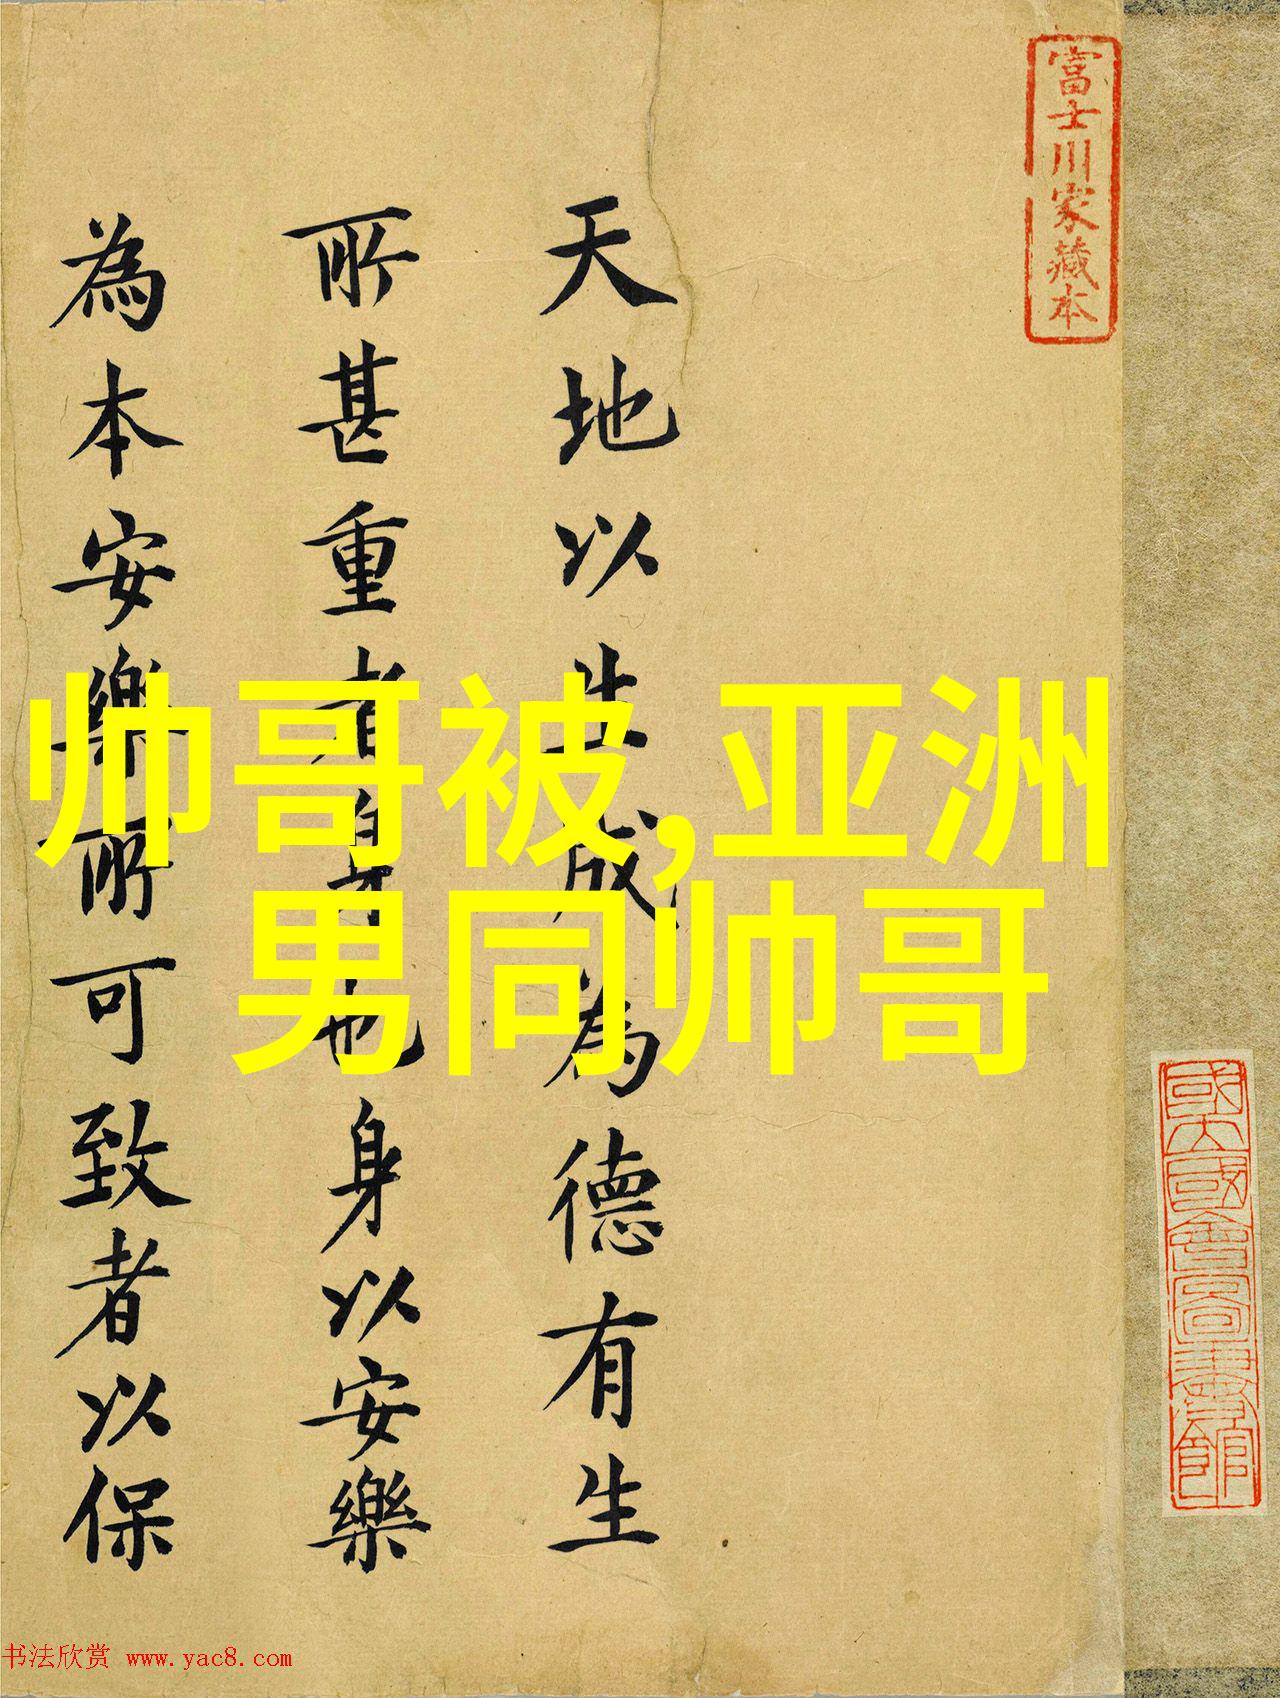 富士川家藏本
天地以生成為德有生
所甚重者身也身以安樂
為本安樂所可致者以保
帅哥被,亚洲
男同帅哥
书法欣赏 www.yac8.com